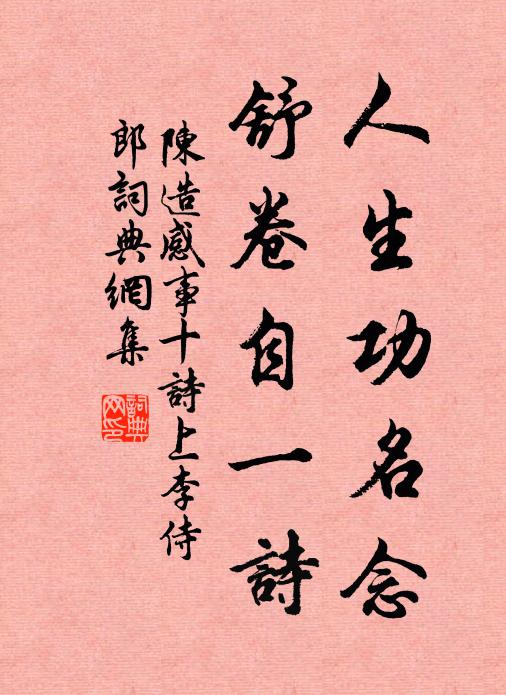 人生功名念
舒卷自一詩
陳造感事十詩上李侍
郎詞典網集
詞典網印